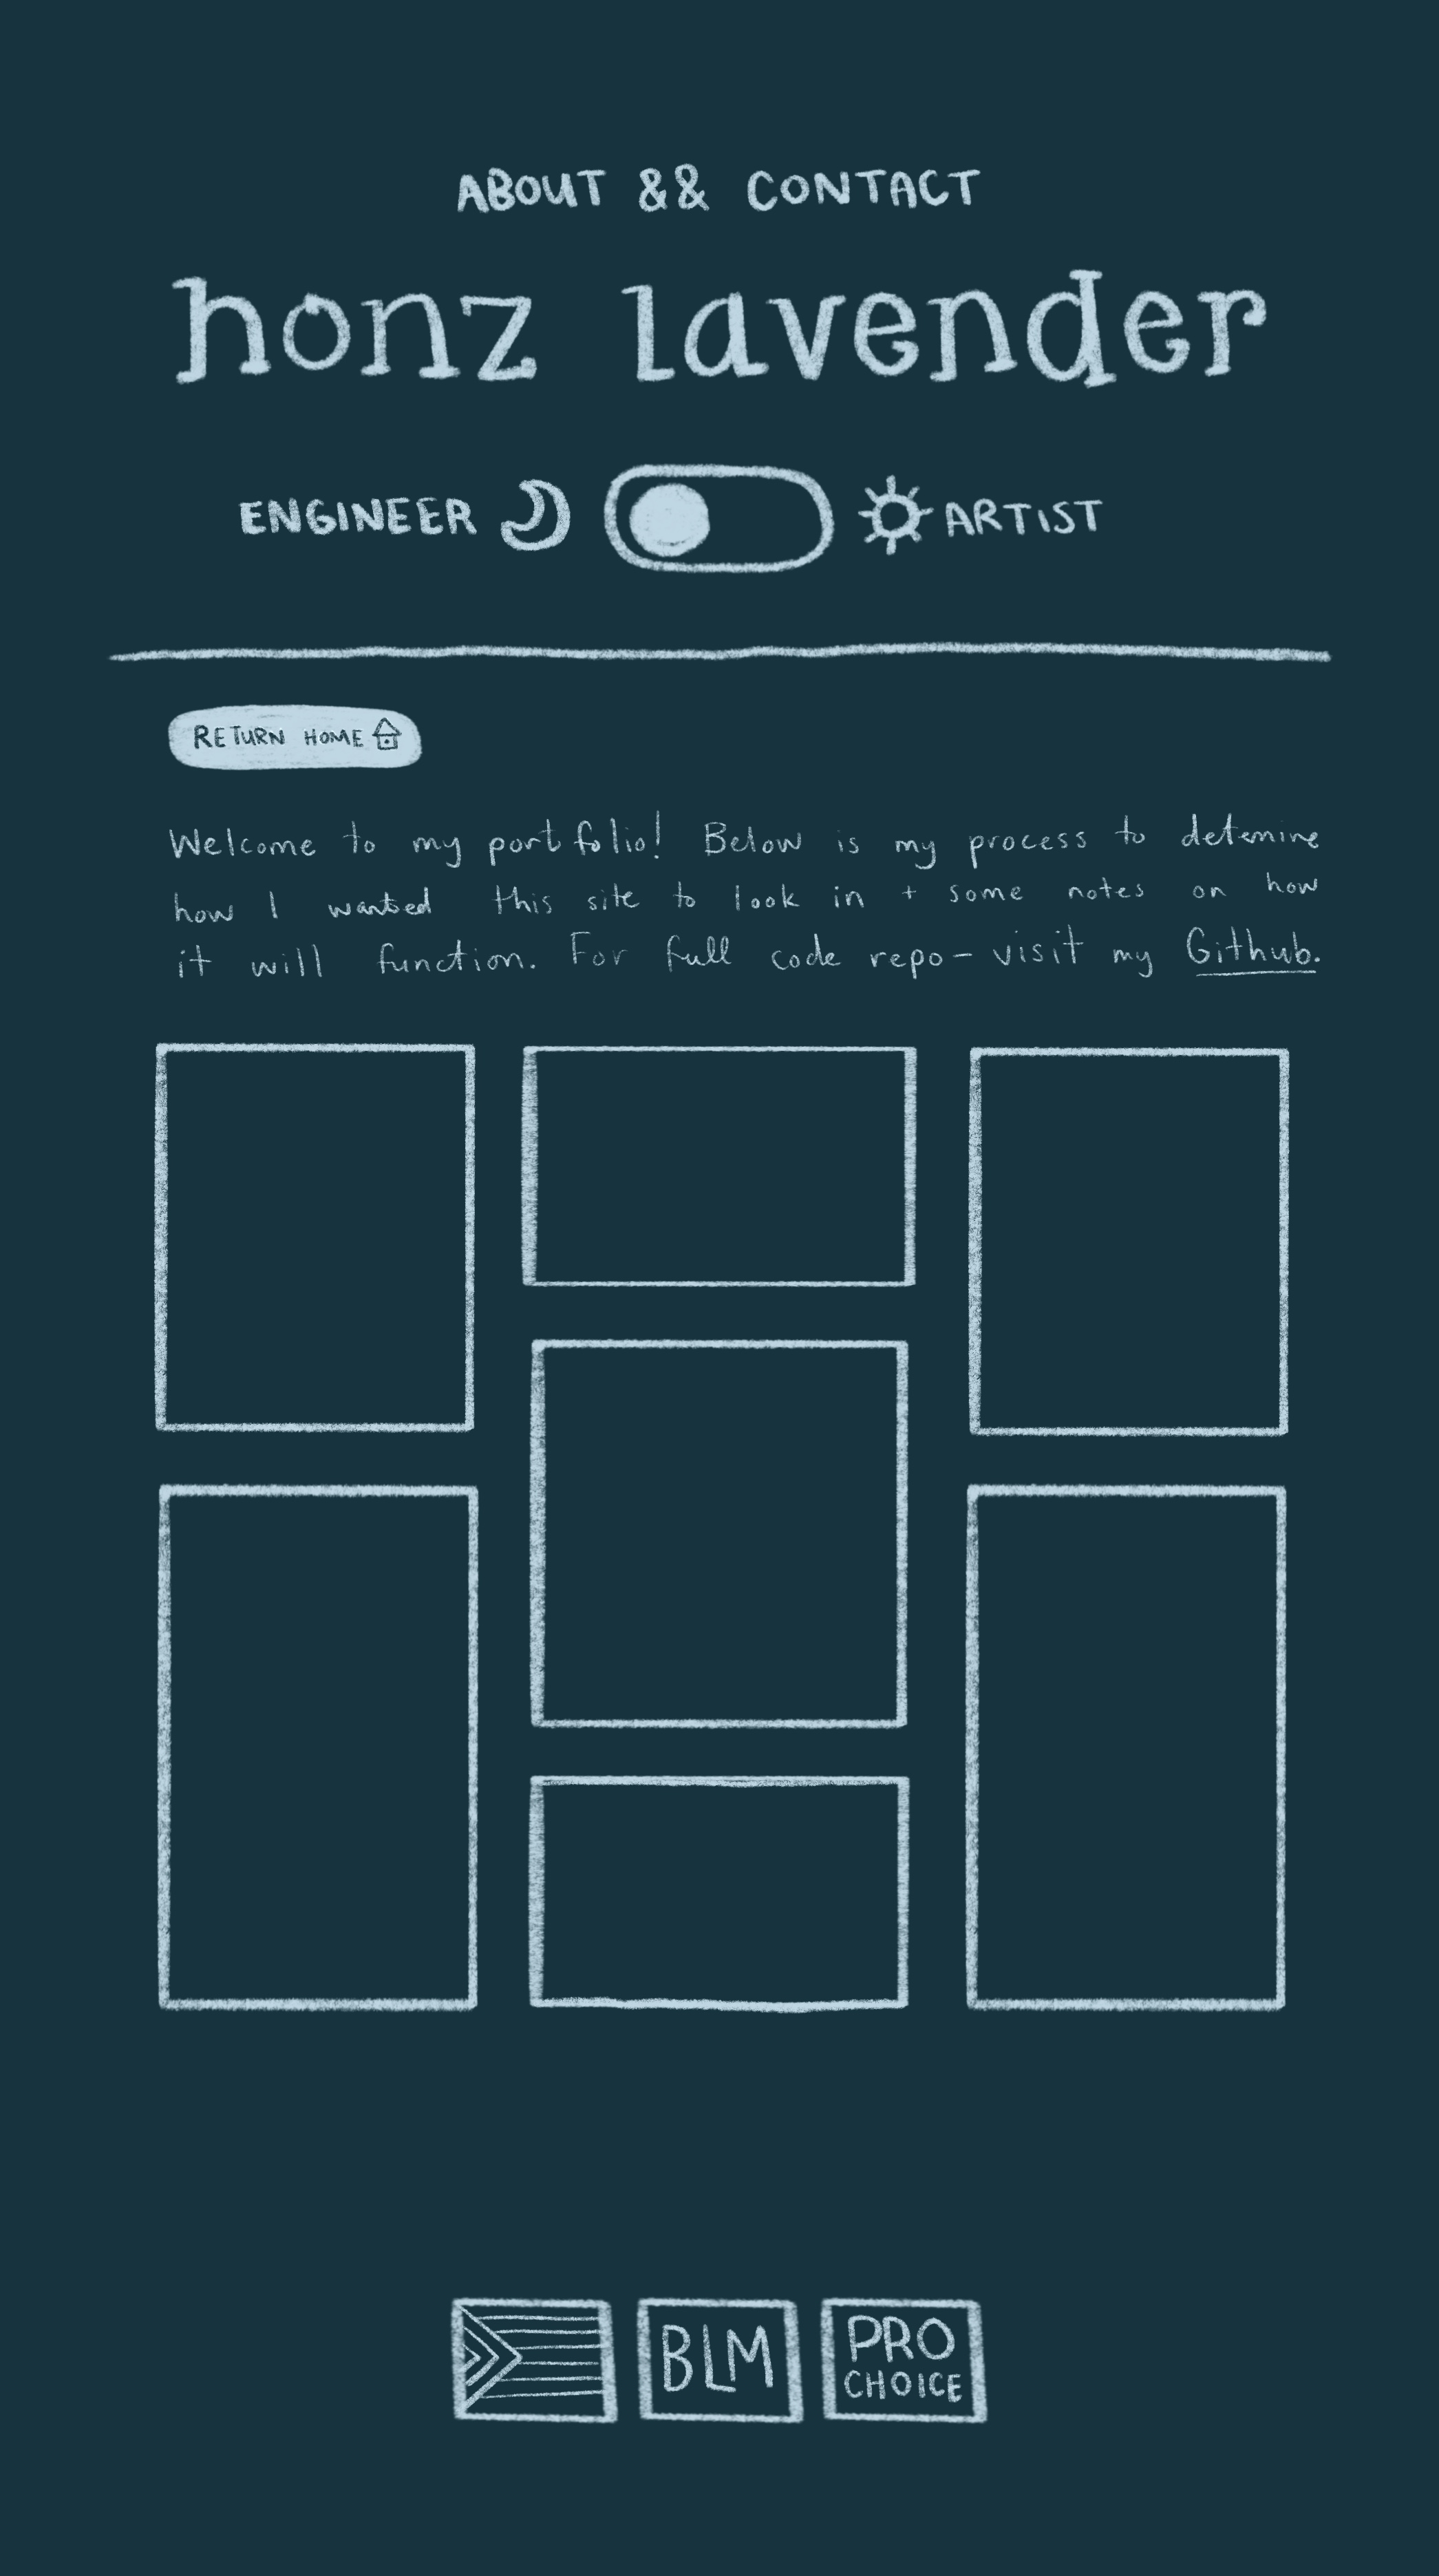 ABOUT && CONTACT
honz lavender
ENGINEER ARTIST
RETURN HOME
Welcome to my portfolio! Below is my process to detemine
how I wanted this site to look in + some notes on how
it will function. For full code repo - visit my Github.
BLM
PRO
CHOICE